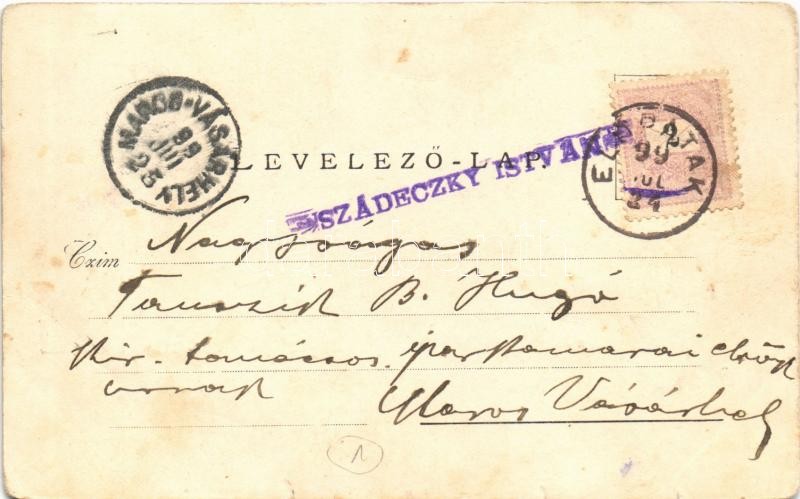 MAROS-VÁSÁRHELY
99
JUL
25
LEVELEZŐ-LAP.
SZÁDECZKY ISTVÁN
99
JUL
24
Czim Nagyságos
B. Hugó
Kir. tanácsos iparkamarai elnök
urnak
Maros Vásárhely
1